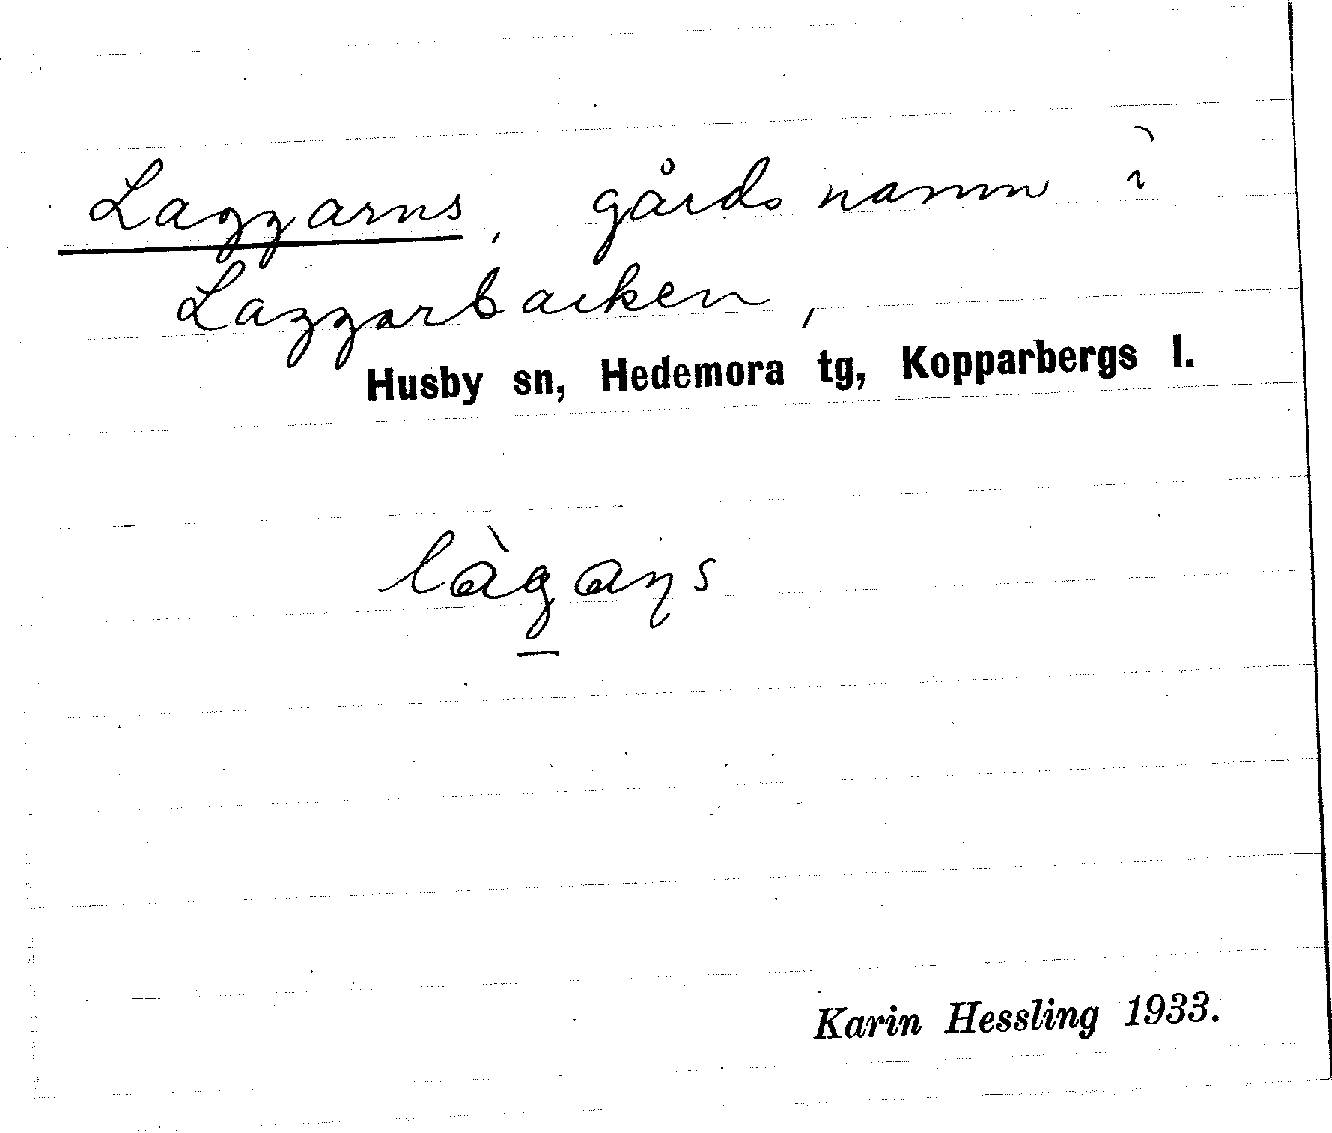 Laggarns, gårdsnamn i
Laggarbacken,
Husby sn, Hedemora tg, Kopparbergs l.
Karin Hessling 1933.